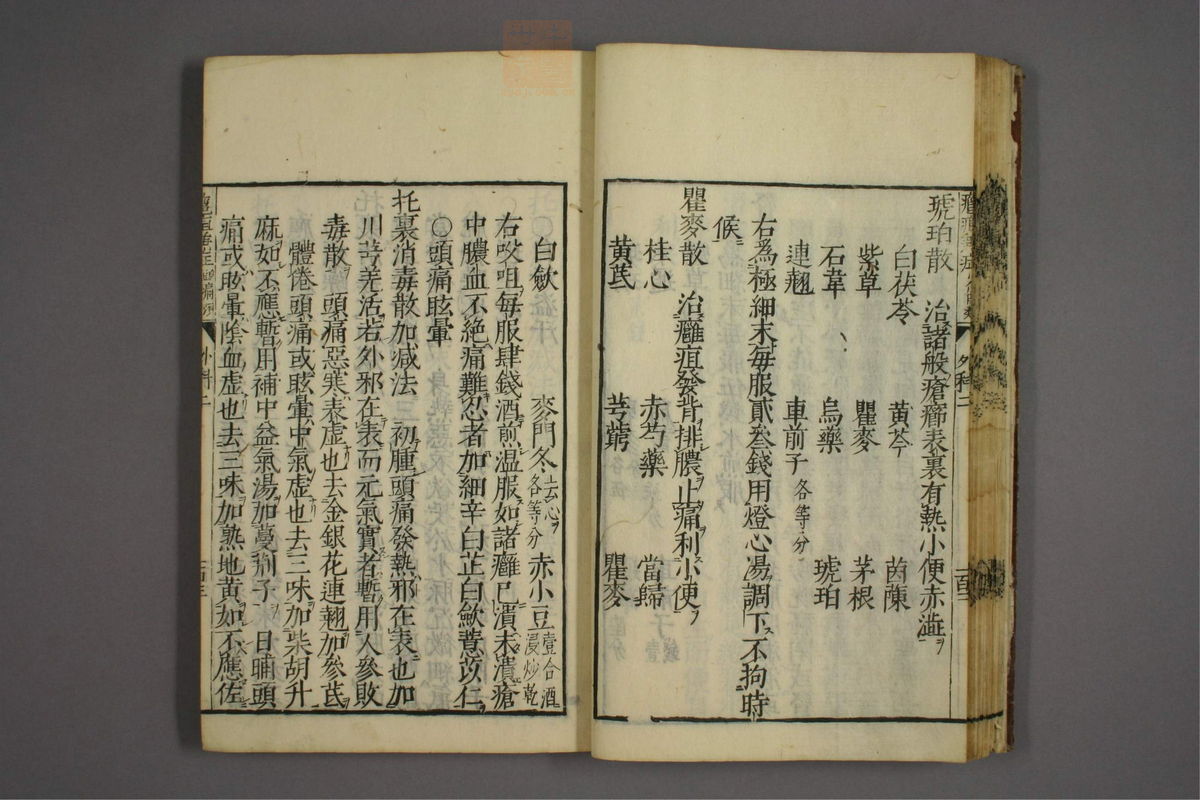 琥珀散　治諸般瘡癤表裏有熱小便赤澁ヲ
白茯苓　黄芩　茵蔯
紫草　瞿麥　茅根
石韋　烏藥　琥珀
連翹　車前子各等分
右為極細末毎服貳叁錢用燈心湯調下不拘時
候
瞿麥散　治癰疽發背排膿止痛利小便
桂心　赤芍藥　當歸
黄芪　芎藭　瞿麥
白斂　麥門冬去心各等分　赤小豆壹合酒浸炒乾
右㕮咀毎服肆錢酒煎温服如諸癰已潰未潰瘡
中膿血不絶痛難忍者加細辛白芷白斂薏苡仁
○頭痛眩暈
托裏消毒散加减法　初腫頭痛發熱邪在表也加
川芎羌活若外邪在表而元氣實者暫用人參敗
毒散　頭痛惡寒表虚也去金銀花連翹加參芪
體倦頭痛或眩暈中氣虚也去三味加柴胡升
麻如不應暫用補中益氣湯加蔓荆子　日晡頭
痛或眩暈陰血虚也去三味加熟地黄如不應佐
外科二